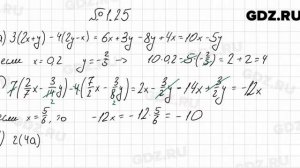 GDZ.RU
№ 1.25
а) 3(2x+y) - 4(2y-x) = 6x+3y-8y+4x = 10x-5y
если x = 0,2 y = -2/5 то 10·0,2 - 5·(-2/5) = 2+2 = 4
7(2/7 x - 3/14 y) - 4(7/2 x - 3/8 y) = 2x - 3/2 y - 14x + 3/2 y = -12x
если x = 5/6, то -12x = -12·5/6 = -10
2(4a)